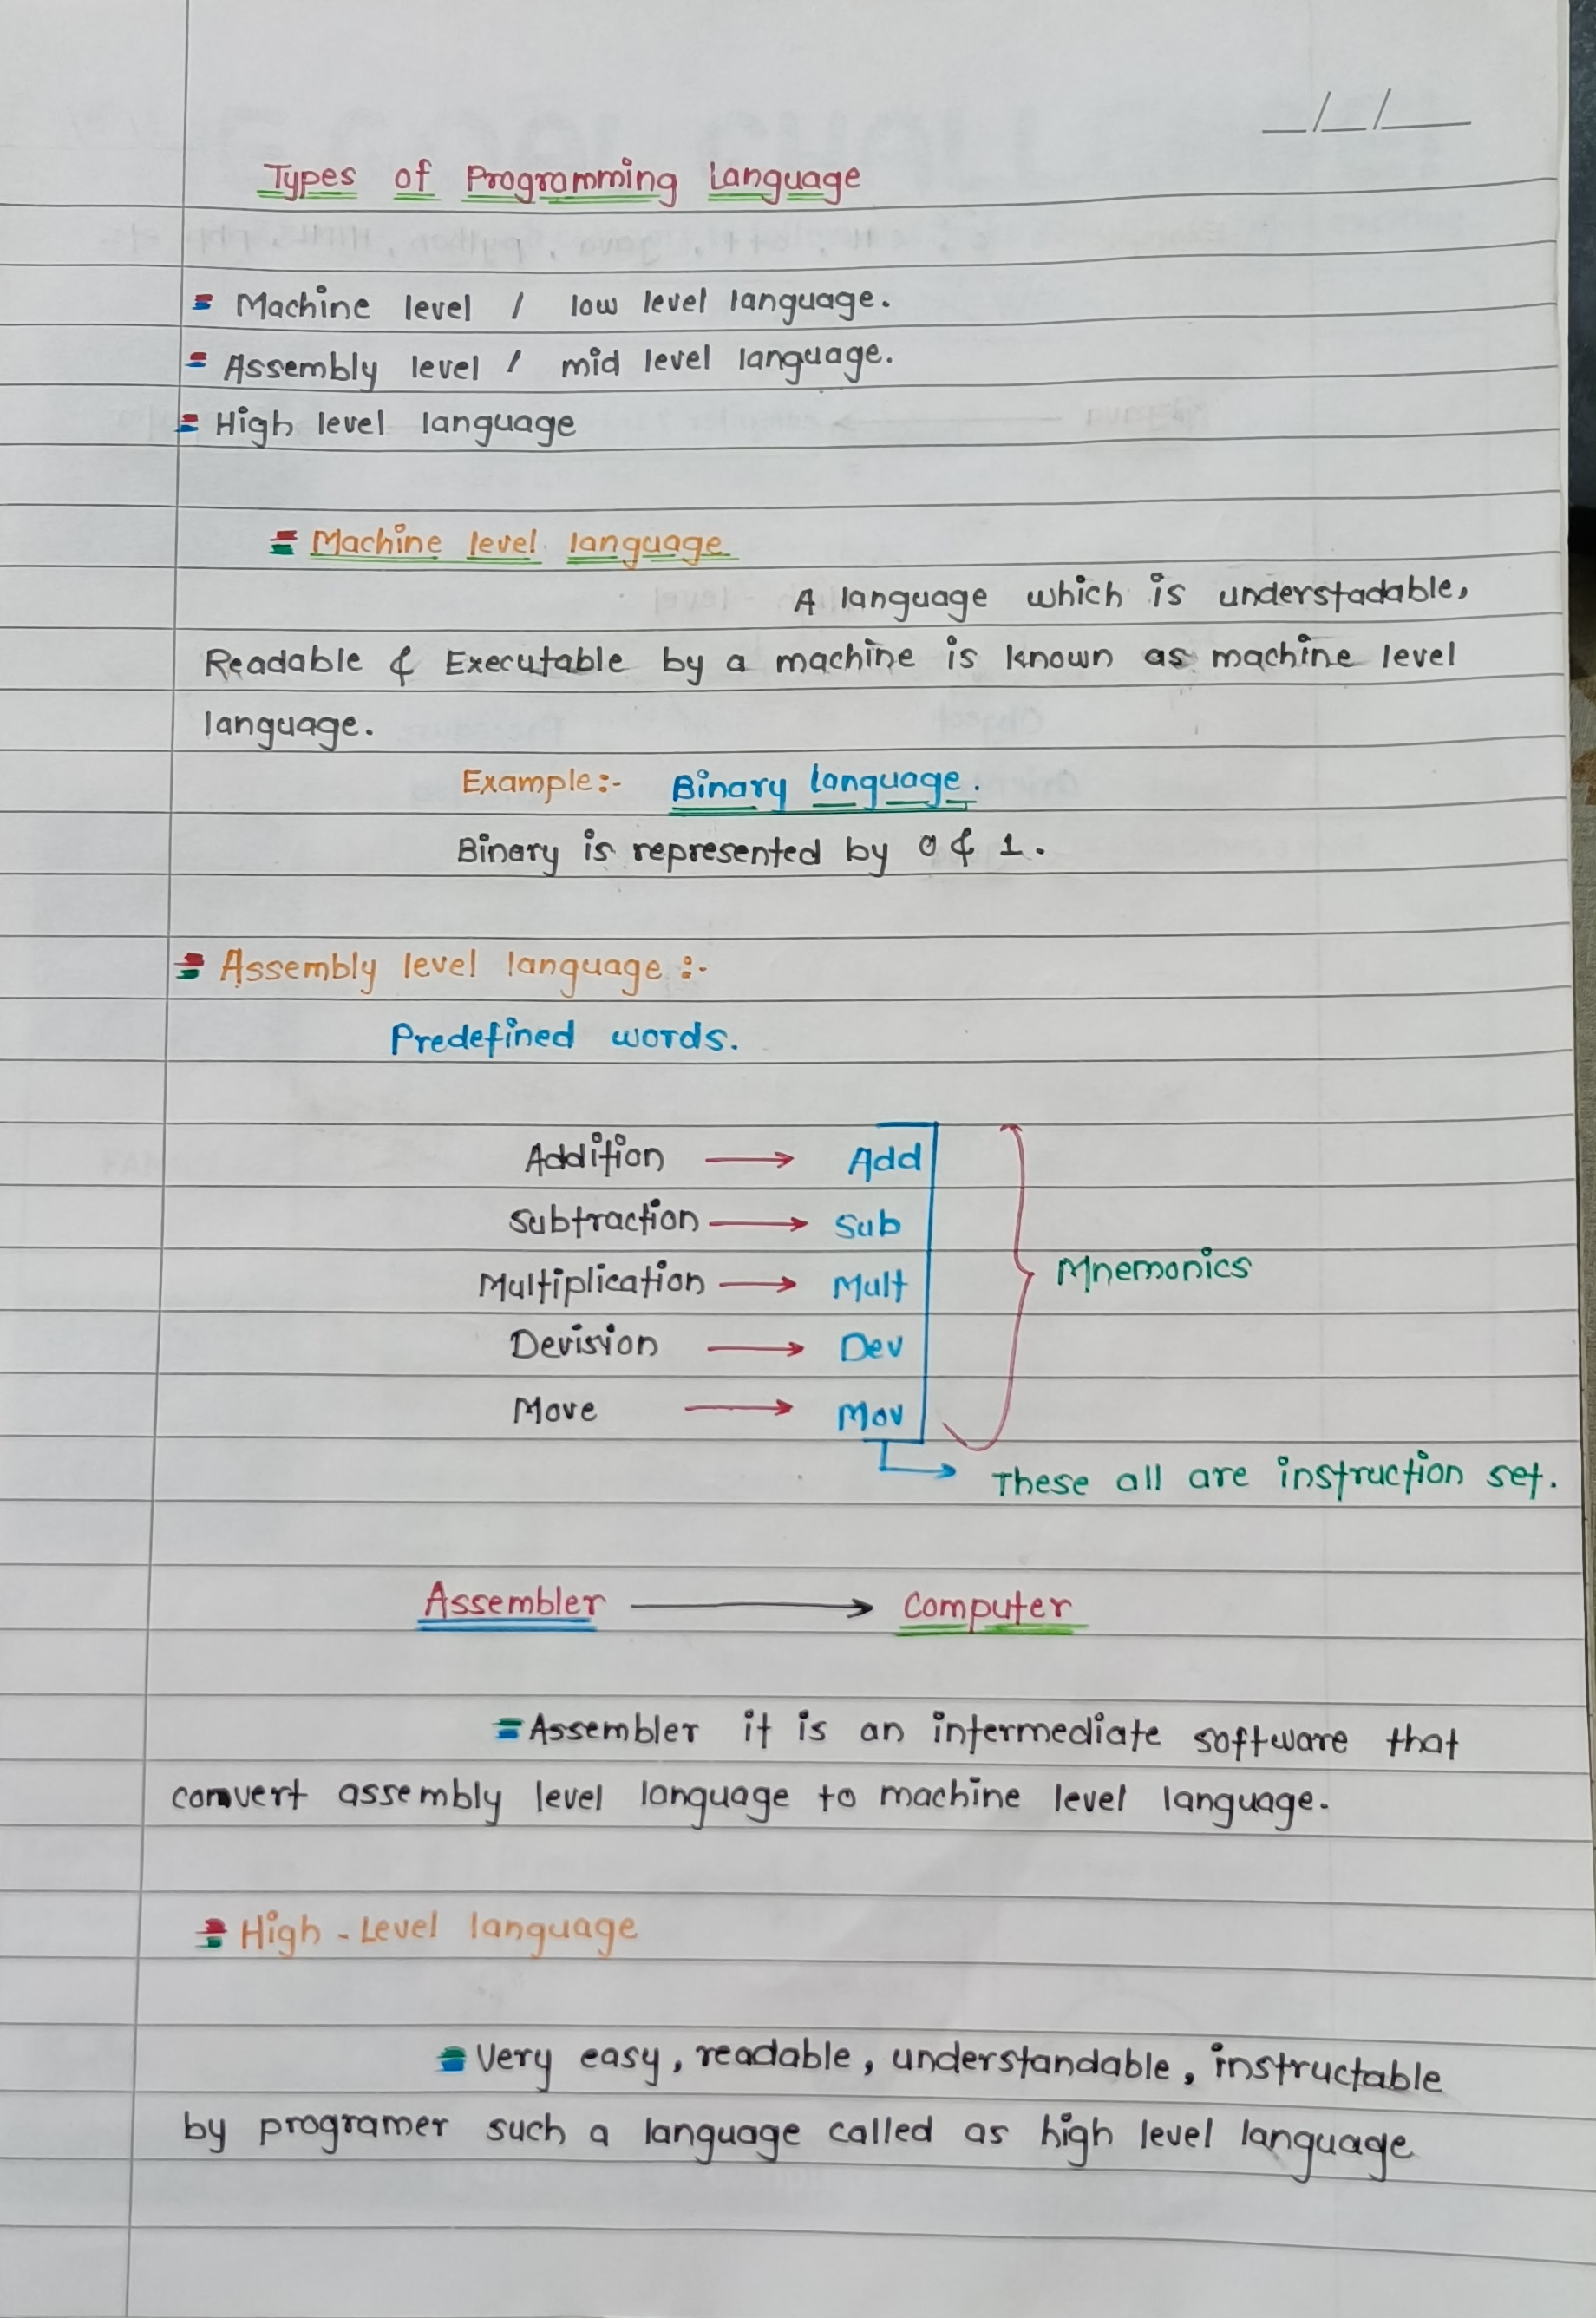 _/_/__
Types of Programming Language
Machine level / low level language.
Assembly level / mid level language.
High level language
Machine level language
A language which is understadable,
Readable & Executable by a machine is known as machine level
language.
Example:- Binary language.
Binary is represented by 0 & 1.
Assembly level language :-
Predefined words.
Addition → Add
Subtraction → Sub
Multiplication → Mult
Mnemonics
Devision → Dev
Move → Mov
These all are instruction set.
Assembler → Computer
Assembler it is an intermediate software that
convert assembly level language to machine level language.
High - Level language
Very easy, readable, understandable, instructable
by programer such a language called as high level language